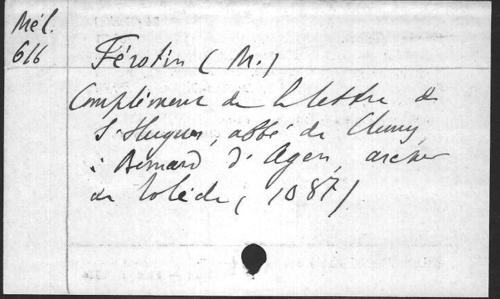 Mél.
616
Férotin (M.)
Complément de la lettre de
St Hugues, abbé de Cluny,
à Bernard d'Agen, archev
de Tolède, (1087)